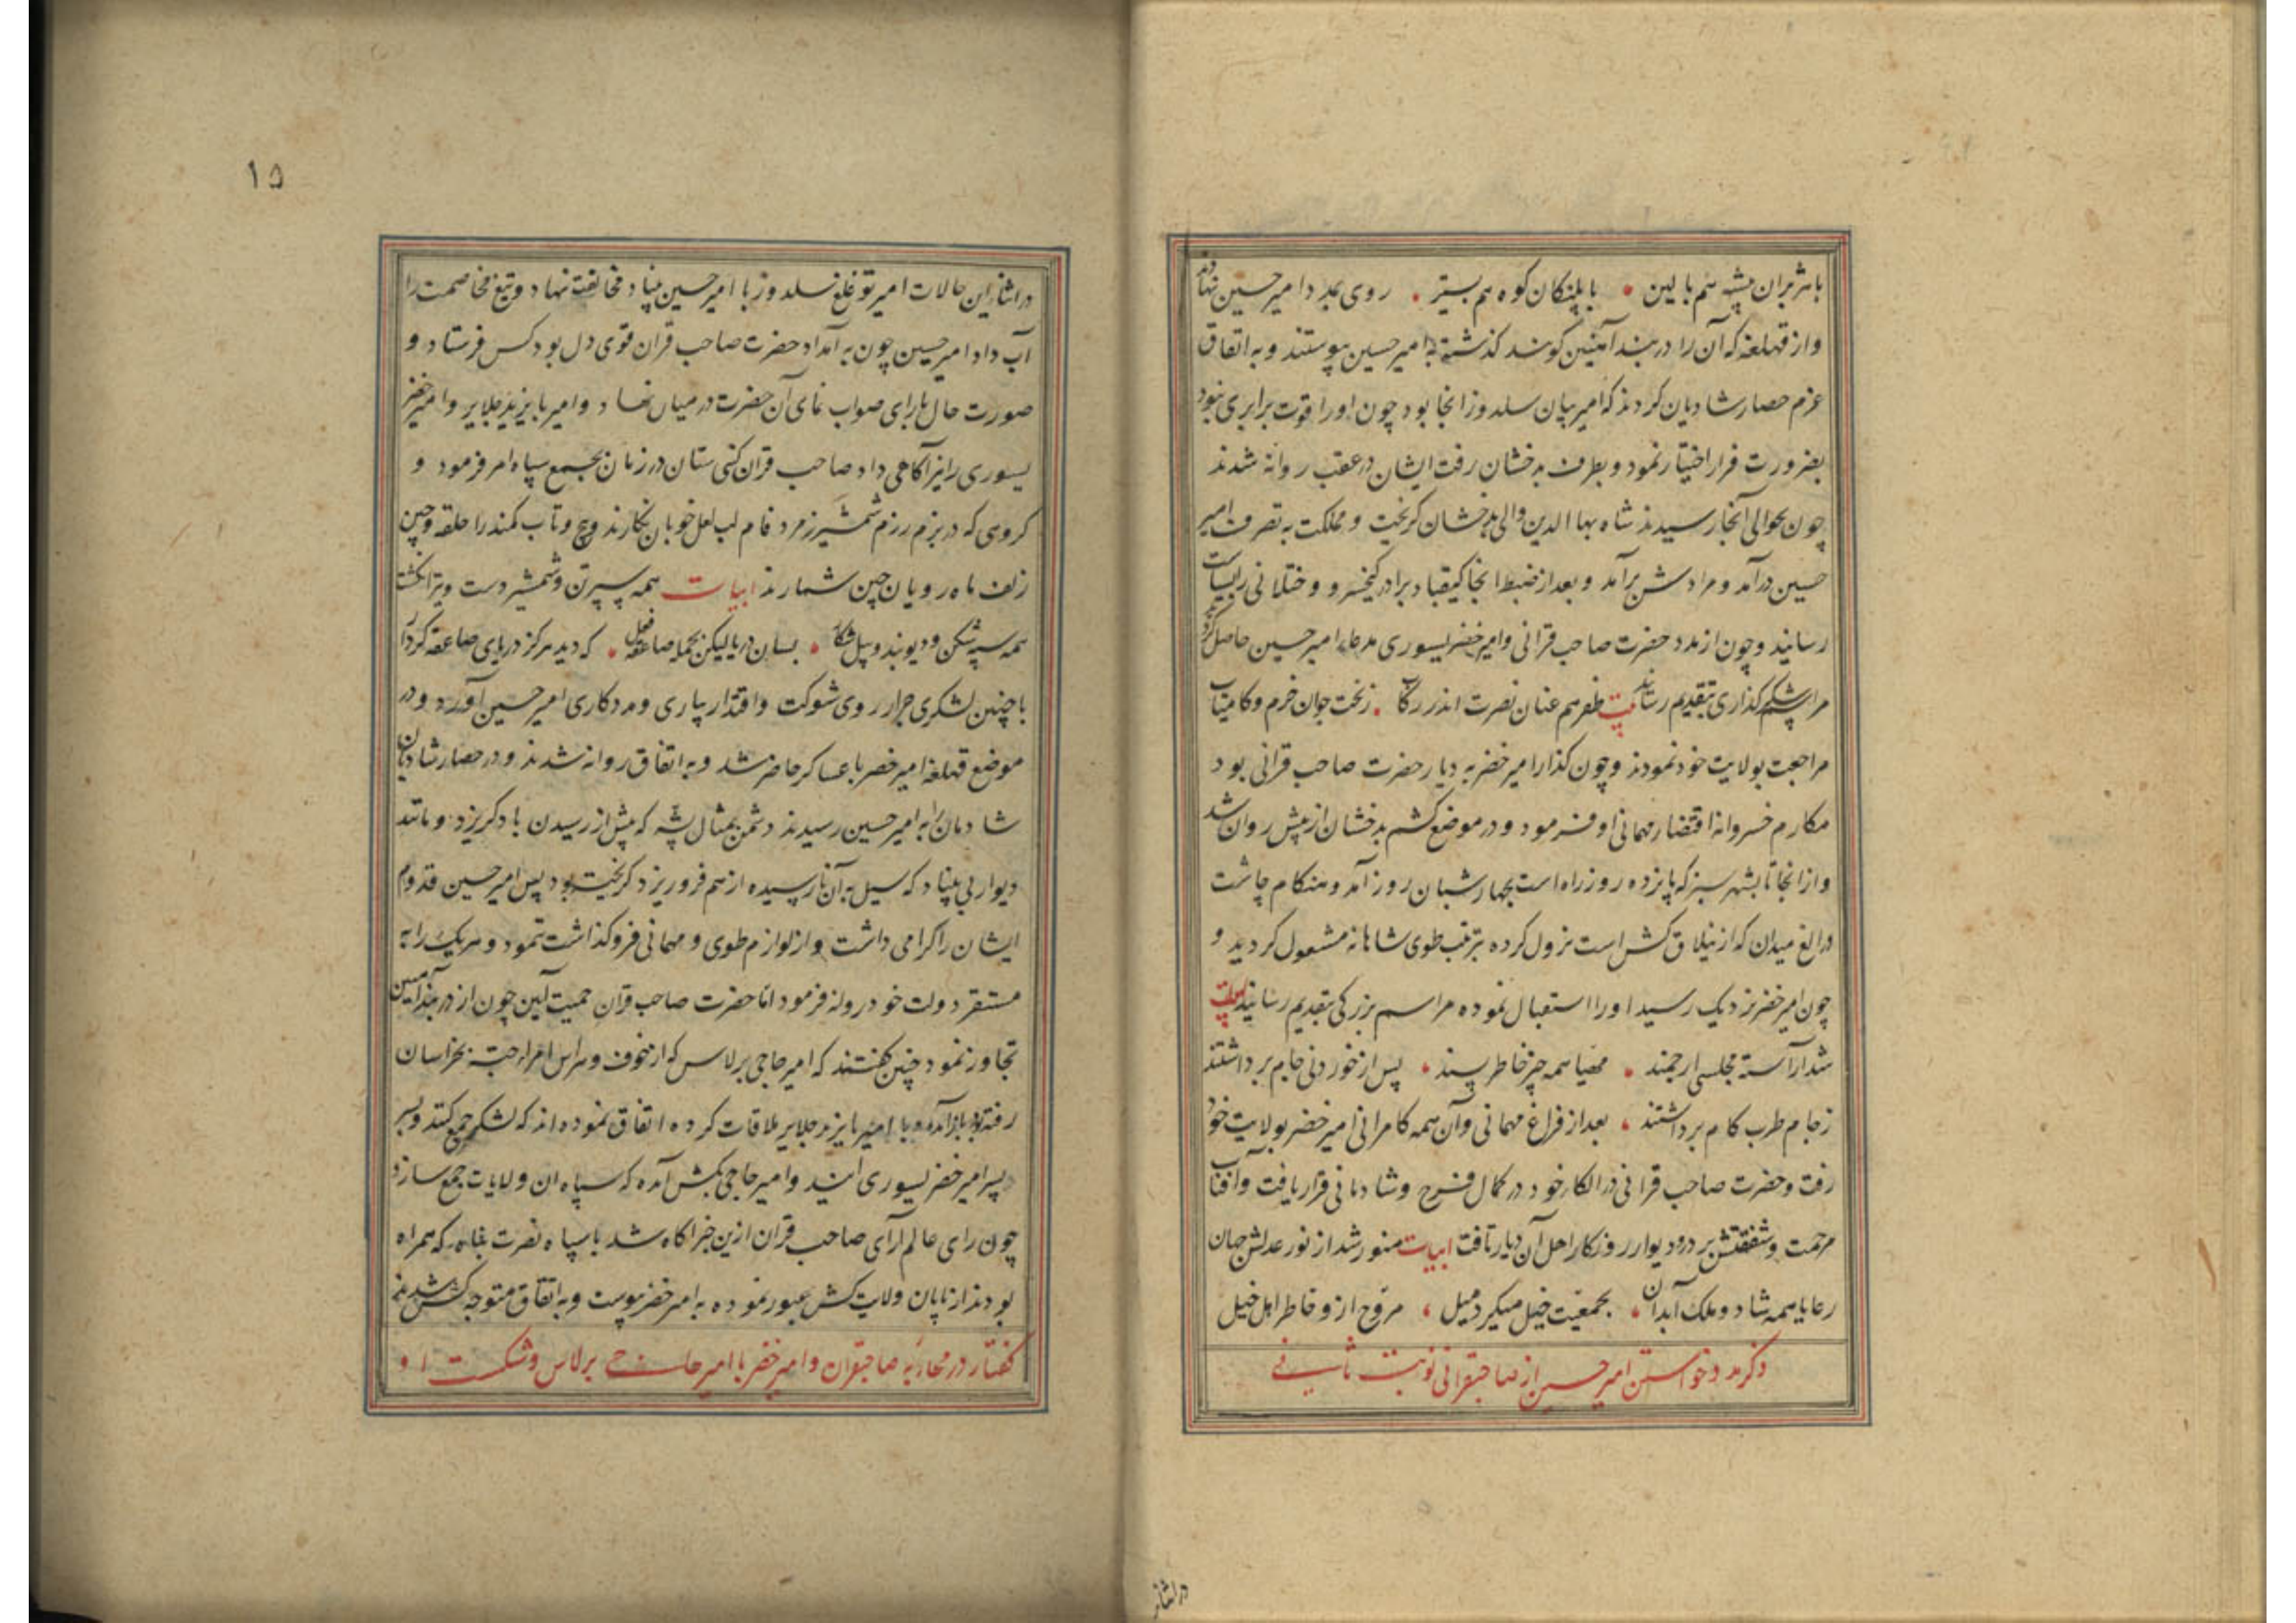 باهژبران بیشه هم بالین • با پلنکان کوه هم بستر • روی بمدد امیر حسین نهادند
و از قهلغه که آن را دربند آهنین کویند کذشته به امیر حسین پیوستند و به اتفاق
عزم حصار شادمان کردند که امیر بیان سلدوز انجا بود چون او را قوت برابری نبود
بضرورت فرار اختیار نمود و بطرف بدخشان رفت ایشان در عقب روانه شدند
چون بحوالی آنجا رسیدند شاه بها الدین والی بدخشان کریخت و مملکت به تصرف امیر
حسین در آمد و مرادش بر آمد و بعد از ضبط انجا کیقباد برادر کیخسرو و ختلانی را بسیاست
رسانید و چون از مدد حضرت صاحب قرانی و امیر خضر یسوری مدعاء امیر حسین حاصل کردید
مراسم شکر کذاری بتقدیم رسانید بیت ظفر هم عنان نصرت اندر رکاب • ز بخت جوان خرم و کامیاب
مراجعت بولایت خود نمودند و چون کذار امیر خضر به دیار حضرت صاحب قرانی بود
مکارم خسروانه اقتضاء مهمانی او فرمود و در موضع کشم بدخشان از پیش روان شد
و از انجا تا بشهر سبز که پانزده روز راه است بچهار شبان روز آمد و هنکام چاشت
در الغ میدان که از ییلاق کش است نزول کرده بترتیب طوی شاهانه مشعول کردید و
چون امیر خضر نزدیک رسید او را استقبال نموده مراسم بزرکی بتقدیم رسانید ابیات
شد آراسته مجلسی ارجمند • مهیا همه چیز خاطر پسند • پس از خوردنی جام برداشتند
ز جام طرب کام برداشتند • بعد از فراغ مهمانی و آن همه کامرانی امیر خضر بولایت خود
رفت و حضرت صاحب قرانی در الکاء خود در کمال فرح و شادمانی قرار یافت و آفتاب
مرحمت و شفقتش بر در و دیوار روزکار اهل آن دیار تافت ابیات منور شد از نور عدلش جهان
رعایا همه شاد و ملک آبدان • بجمعیت خیل میکرد میل • مروح ازو خاطر اهل خیل
ذکر مدد خواستن امیر حسین از صاحبقرانی نوبت ثانی
در اثناء
۱۵
در اثناء این حالات امیر توغلغ سلدوز با امیر حسین بنیاد مخالفت نهاد و تیغ مخاصمت را
آب داد امیر حسین چون به آمداد حضرت صاحب قران قوی دل بود کس فرستاد و
صورت حال با رای صواب نمای آن حضرت در میان نهاد و امیر بایزید جلایر و امیر خضر
یسوری را نیز آکاهی داد صاحب قران کتی ستان در زمان بجمع سپاه امر فرمود و
کروی که در بزم رزم شمشیر زمرد فام لب لعل خوبان نکارند و پیچ و تاب کمند را حلقه و چین
زلف ماه رویان چین شمارند ابیات همه سپر تن و شمشیر دست و تیر انکشت
همه سپه شکن و دیوبند و پیل شکار • بسان دریا لیکن بحمله صاعقه فعل • که دید هرکز دریای صاعقه کردار
با چنین لشکری جرار روی شوکت و اقتدار بیاری و مددکاری امیر حسین آورد و در
موضع قهلغه امیر خضر با عساکر حاضر شد و به اتفاق روانه شدند و در حصار شادمان
شادمان به امیر حسین رسیدند دشمن بمثال پشه که پیش از رسیدن باد کریزد و مانند
دیوار بی بنیاد که سیل به آن نارسیده از هم فرو ریزد کریخته بود پس امیر حسین قدوم
ایشان را کرامی داشت و از لوازم طوی و مهمانی فروکذاشت ننمود و هر یک را به
مستقر دولت خود روانه فرمود اما حضرت صاحب قران حمیت آیین چون از دربند آهنین
تجاوز نمود چنین کفتند که امیر حاجی برلاس که از خوف و هراس امراء جته بخراسان
رفته بود باز آمده و با امیر بایزید جلایر ملاقات کرده اتفاق نموده اند که لشکر جمع کنند و بسر
بسر امیر خضر یسوری آیند و امیر حاجی بکش آمده که سپاه ان ولایات جمع سازد
چون رای عالم آرای صاحب قران ازین خبر آکاه شد با سپاه نصرت پناه که همراه
بودند از پایان ولایت کش عبور نموده به امیر خضر پیوست و به اتفاق متوجه کش شدند
کفتار در محاربه صاحبقران و امیر خضر با امیر حاجی برلاس و شکست او